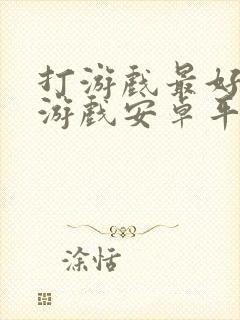 打游戏最好
游戏安卓平
涂恬